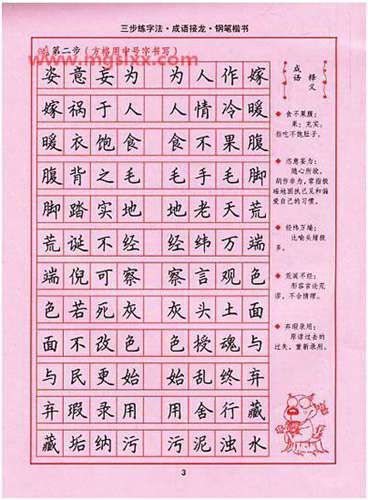 三步练字法·成语接龙·钢笔楷书
第二步（方格用中号字书写）
www.mgslxx.com
姿意妄为 为人作嫁
嫁祸于人 人情冷暖
暖衣饱食 食不果腹
腹背之毛 毛手毛脚
脚踏实地 地老天荒
荒诞不经 经纬万端
端倪可察 察言观色
色若死灰 灰头土面
面不改色 色授魂与
与民更始 始乱终弃
弃瑕录用 用舍行藏
藏垢纳污 污泥浊水
成语
释义
食不果腹：
果：充实。
指吃不饱肚子。
恣意妄为：
随心所欲，
胡作非为，常指极
端地固执己见和偏
爱自己的习惯。
经纬万端：
比喻头绪很
多。
荒诞不经：
形容言论荒
谬，不合情理。
弃瑕录用：
原谅过去的
过失，重新录用。
3